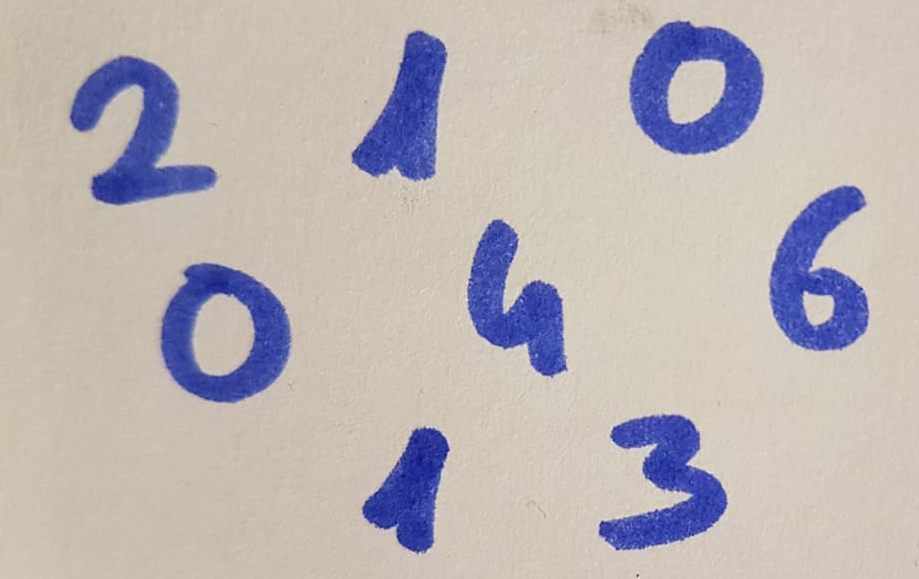 2 1 0
0 4 6
1 3